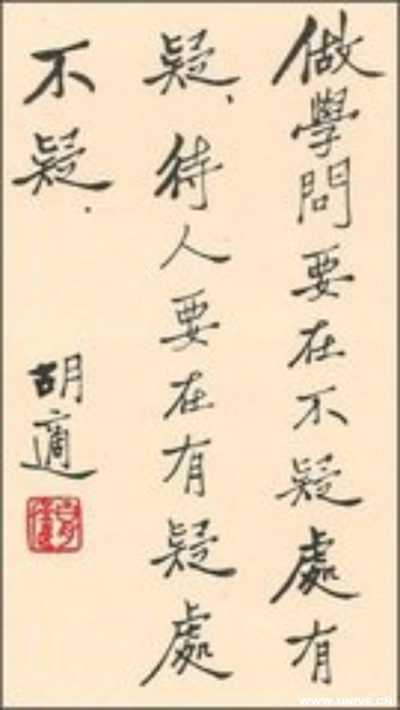 做學問要在不疑處有
疑、待人要在有疑處
不疑．
胡適
WWW.UNIVS.CN